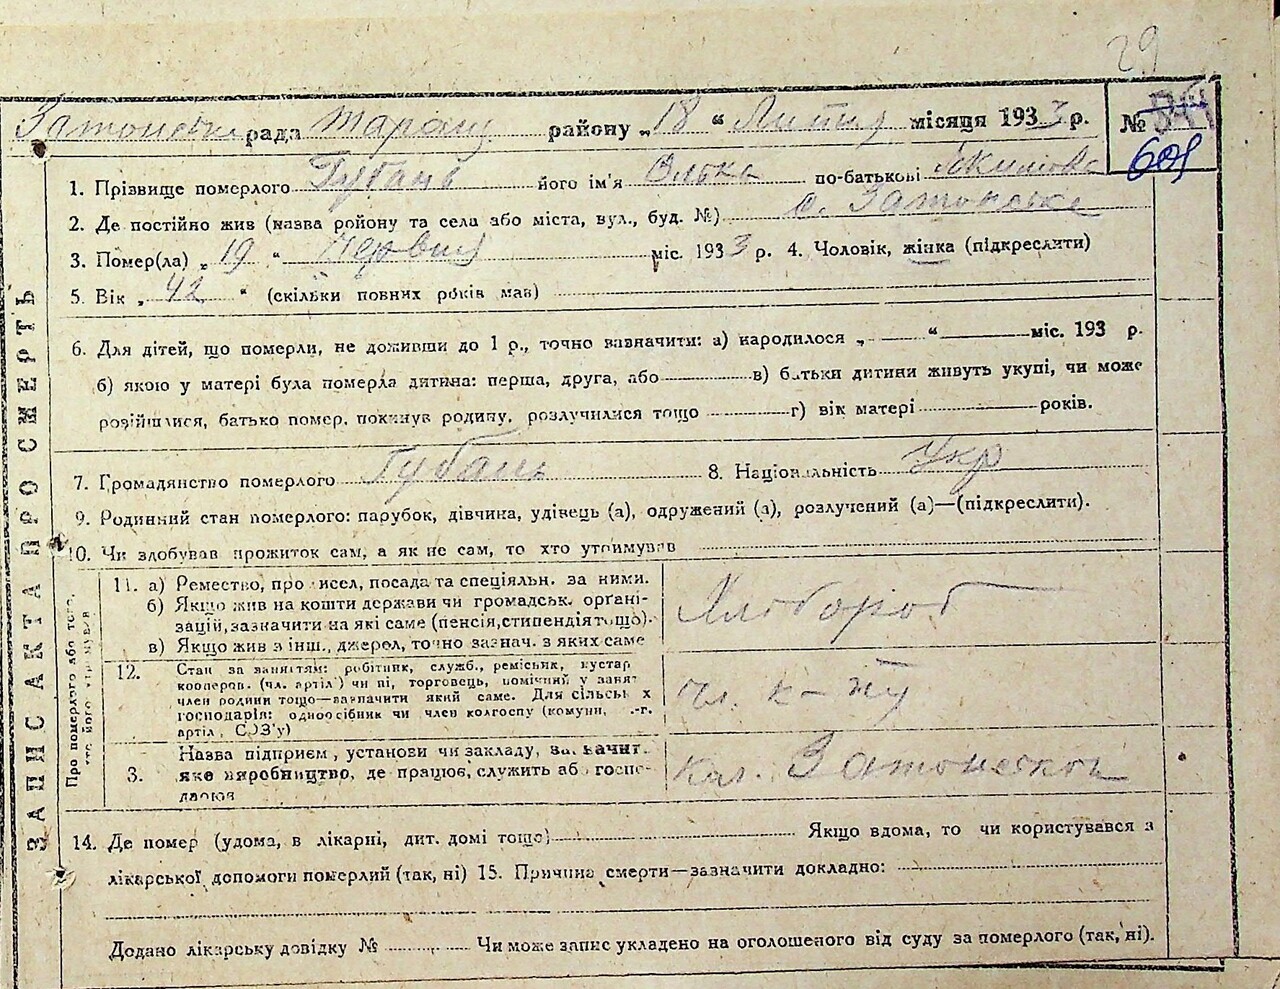 29
Затонська рада Таращ району „18“ Липня місяця 1933 р. №
601
1. Прізвище померлого Губань його ім'я Олька по-батькові Якимовна
2. Де постійно жив (назва району та села або міста, вул., буд. №) с. Затонське
3. Помер(ла) „19“ Червня міс. 1933 р. 4. Чоловік, жінка (підкреслити)
5. Вік „42“ (скільки повних років мав)
6. Для дітей, що померли, не доживши до 1 р., точно вазначити: а) народилося „ “ міс. 193 р.
б) якою у матері була померла дитина: перша, друга, або в) батьки дитини живуть укупі, чи може
розійшлися, батько помер, покинув родину, розлучилися тощо г) вік матері років.
7. Громадянство померлого Губань 8. Національність Укр
9. Родинний стан померлого: парубок, дівчина, удівець (а), одружений (а), розлучений (а)—(підкреслити).
10. Чи здобував прожиток сам, а як не сам, то хто утримував
ЗАПИС АКТА ПРО СМЕРТЬ
Про померлого або того, хто його утримував
11. а) Ремество, промисел, посада та спеціяльн. за ними.
б) Якщо жив на кошти держави чи громадськ. органі-
зацій, зазначити на які саме (пенсія, стипендія тощо).
в) Якщо жив з інш. джерел, точно зазнач. з яких саме
Хлібороб
12. Стан за заняттям: робітник, служб., реміснк, кустар
кооперов. (чл. артіл.) чи ні, торговець, помічний у занят
член родини тощо—вазначити який саме. Для сільськ х
господарів: одноосібник чи член колгоспу (комуни, .-г.
артіл, СОЗ'у)
чл. к-пу
3. Назва підприєм, установи чи закладу, зазначит.
яке виробництво, де працює, служить або госпо-
дарює
Кол. Затонской
14. Де помер (удома, в лікарні, дит. домі тощо) Якщо вдома, то чи користувався з
лікарської допомоги померлий (так, ні) 15. Причина смерти—зазначити докладно:
Додано лікарську довідку № Чи може запис укладено на оголошеного від суду за померлого (так, ні).